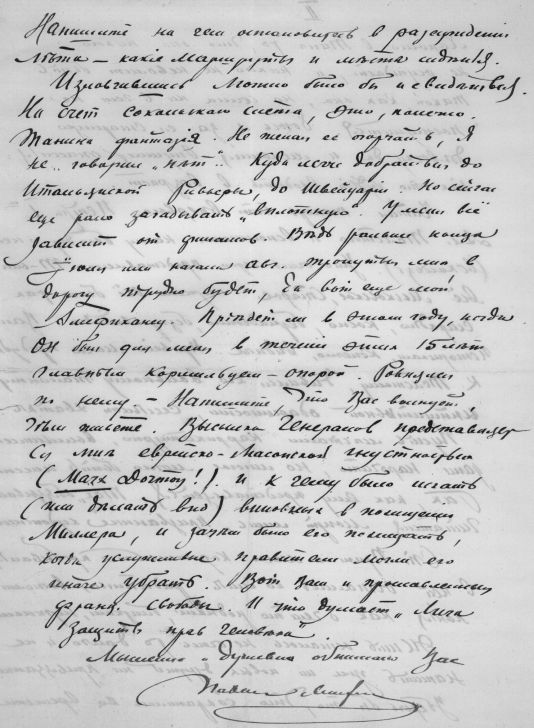 Напишите на чем остановитесь в разсуждении
лѣта – какiе маршруты и мѣста сидѣнiя.
Изловчившись можно было бы и свидаться.
На счет сокольскаго слета, это, конечно.
Танина фантазiя. Не желая ее огорчать, я
не говорил „нѣт“. Куда легче добраться до
Итальянской Ривьеры, до Швейцарiи. Но сейчас
еще рано загадывать „вплотную“. У меня всё
зависит от финансов. Вѣдь раньше конца
Iюля или начала авг. пропустить мнѣ в
дорогу трудно будет, да вот еще мои
Американцы. Прiѣдет ли в этом году, когда
Он был для меня в теченiе этих 15 лѣт
главным кормильцем – опорой. Равнялись
по нему. – Напишите, что Вас волнует,
чѣм живете. Высылка Генералов представляется
мнѣ еврейско-масонской гнусностью
(Marx Dormoy!). и к чему было искать
(или дѣлать вид) виновных в похищенiи
Миллера, и зачѣм было его похищать,
когда услужливые правители могли его
иначе убрать. Вот Вам и прославленная
франц. свобода И что думает „Лига
защиты прав человѣка“.
Мысленно и душевно обнимаю Вас